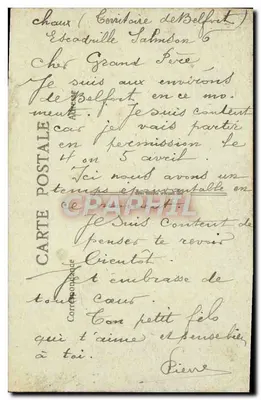 chaux (Territoire de Belfort)
Escadrille Salmson 6
Cher Grand Père
Je suis aux environs
de Belfort en ce mo-
ment. Je suis content
car je vais partir
en permission le
4 en 5 avril.
Ici nous avons un
temps épouvantable en
ce moment.
Je suis content de
penser te revoir
bientôt.
Je t'embrasse de
tout cœur.
Ton petit fils
qui t'aime et pense bien
à toi.
Pierre
CARTE POSTALE
Correspondance
Adresse
CPAPHIL